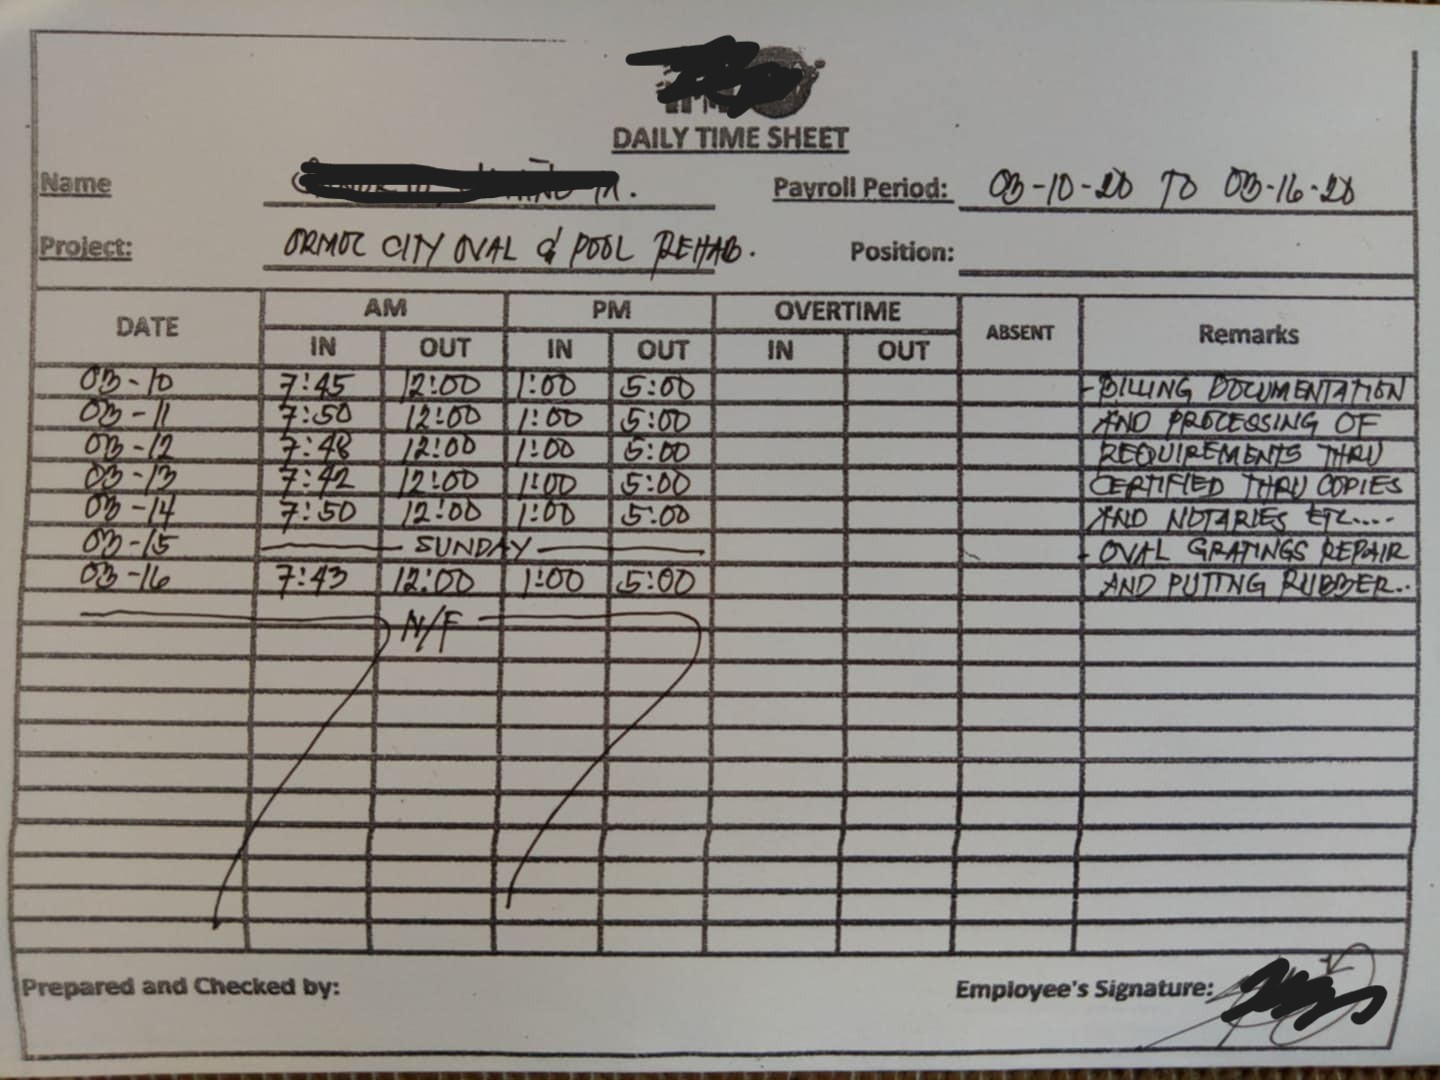 DAILY TIME SHEET
Name
Payroll Period: 03-10-20 TO 03-16-20
Project: ORMOC CITY OVAL & POOL REHAB. Position:
DATE AM PM OVERTIME ABSENT Remarks
IN OUT IN OUT IN OUT
03-10 7:45 12:00 1:00 5:00 - BILLING DOCUMENTATION
03-11 7:50 12:00 1:00 5:00 AND PROCESSING OF
03-12 7:48 12:00 1:00 5:00 REQUIREMENTS THRU
03-13 7:42 12:00 1:00 5:00 CERTIFIED THRU COPIES
03-14 7:50 12:00 1:00 5:00 AND NOTARIES ETC....
03-15 SUNDAY - OVAL GRATINGS REPAIR
03-16 7:43 12:00 1:00 5:00 AND PUTTNG RUBBER..
N/F
Prepared and Checked by: Employee's Signature: